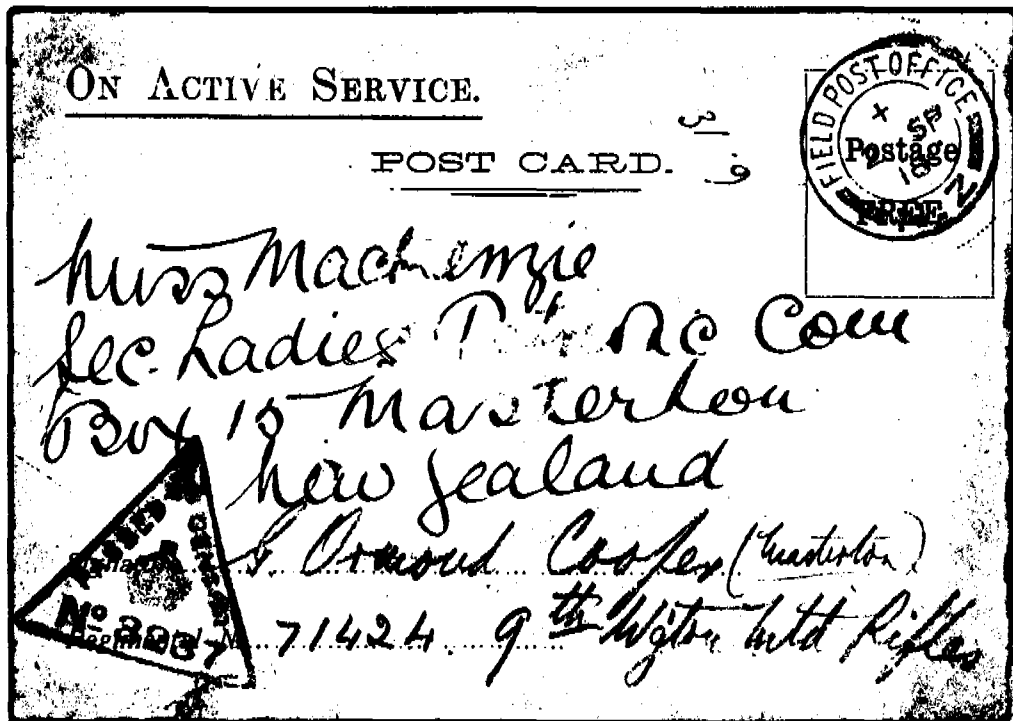 ON ACTIVE SERVICE.
POST CARD.
FIELD POST OFFICE
SP
18
Postage
FREE.
Miss Mackenzie
Sec. Ladies Com
Box 15 Masterton
New Zealand
PASSED
No
Signature G Ormond Cooper (Masterton)
Regimental No. 71424. 9th Wgton Mtd Rifles